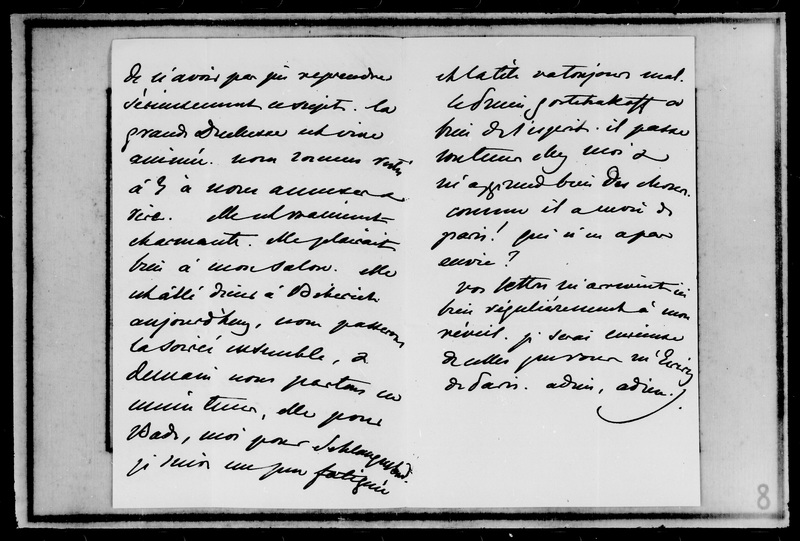 de n'avoir pas pu reprendre
sérieusement ce sujet. la
grande Duchesse est vive
animée. nous sommes restés
à 3 à nous amuser &
rire. elle est vraiment
charmante. elle plairait
bien à mon salon. elle
est allé diner à Biberich
aujourdhuy, nous passerons
la soirée ensemble, &
demain nous partons en
même tems, elle pour
Bade, moi pour Schlangenbad.
je suis un peu fatiguée
et la tête va toujours mal.
le Prince Gortchakoff a
bien de l'esprit. il passe
son tems chez moi &
m'apprend bien des choses.
comme il a envie de
paris! qui n'en a pas
envie?
vos lettres m'arrivent ici
bien régulièrement à mon
réveil. je serai curieuse
de celles que vous m'écrirez
de Paris. adieu, adieu.
8